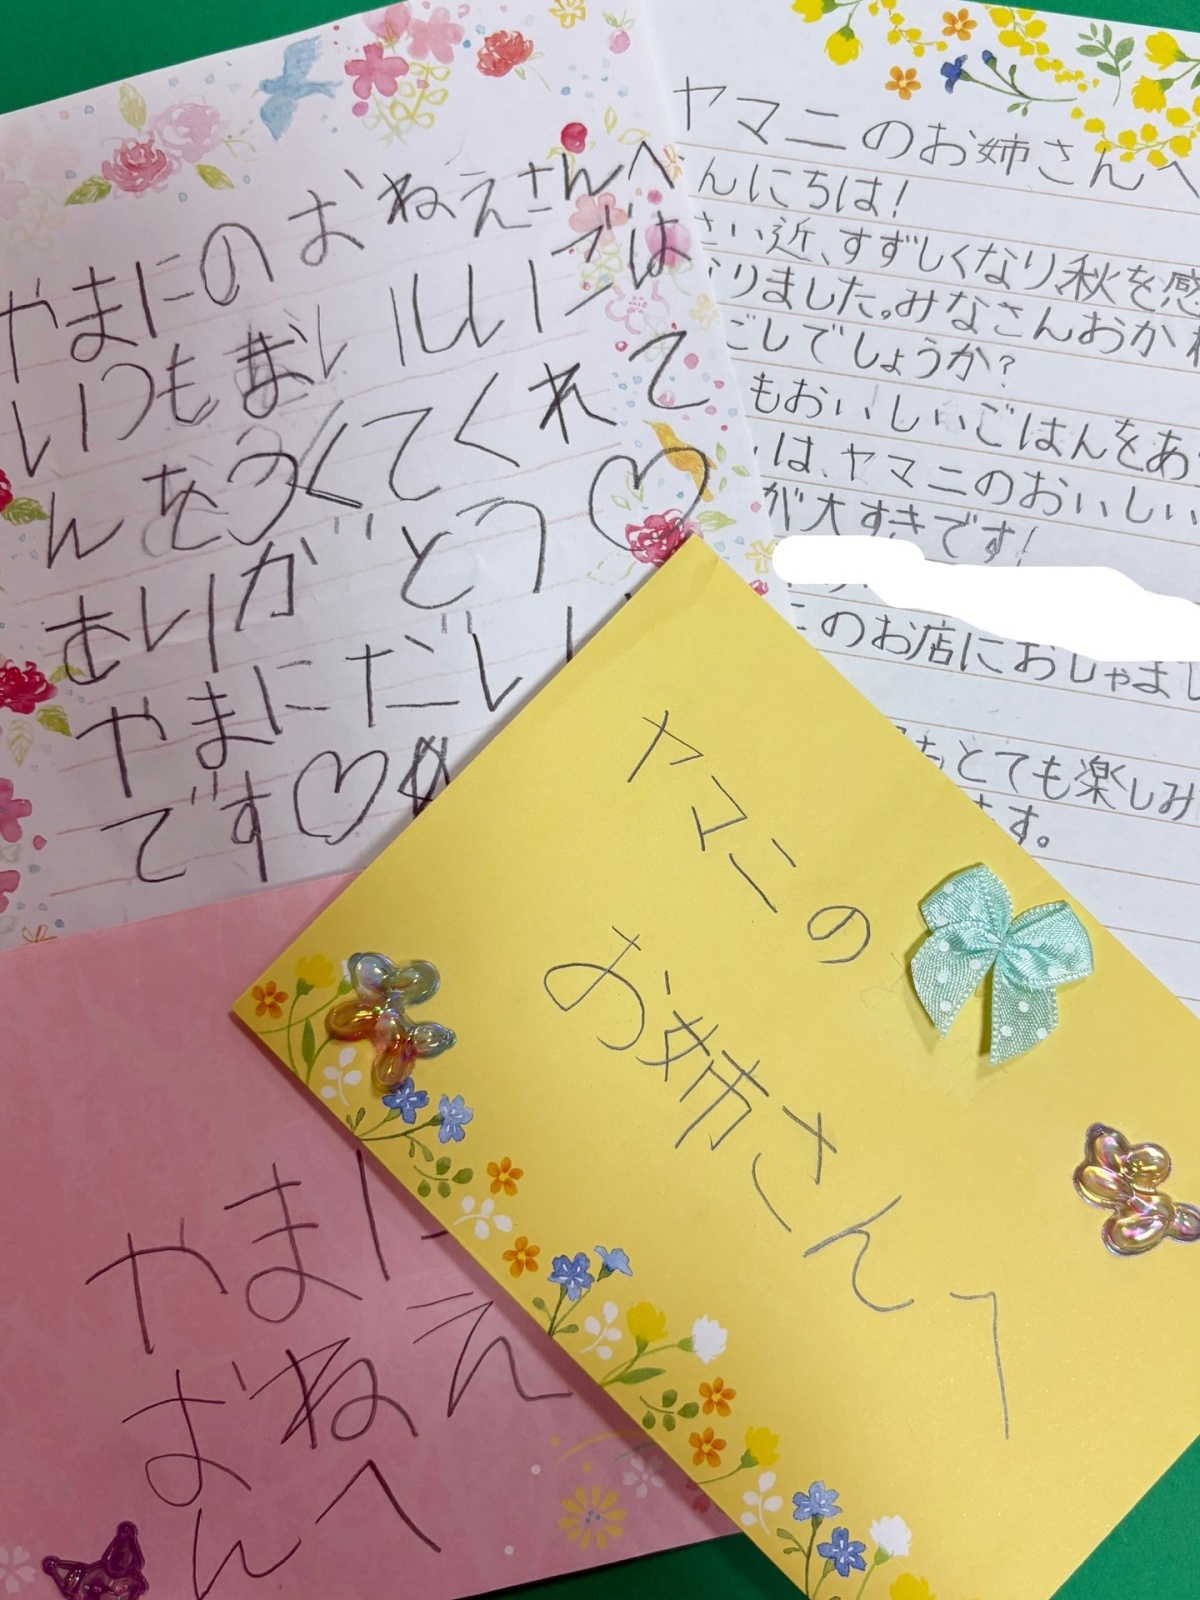 やまにのおねえさんへ
いつもおいしいごは
んをつくてくれて
ありがとう♡
やまにだいい
です♡
ヤマニのお姉さんへ
んにちは!
さい近、すずしくなり、秋を感
りました。みなさんおか
ごしでしょうか?
もおいしいごはんをあ
は、ヤマニのおいしい
が大すきです!
のお店におじゃまし
もとても楽しみ
ます。
ヤマニの
お姉さんへ
やまに
おねえ
んへ